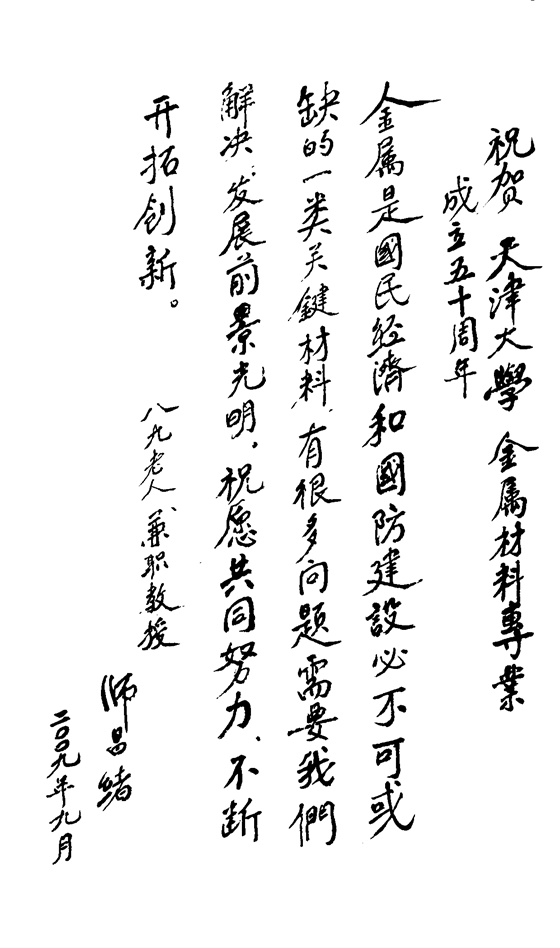 祝贺 天津大學 金属材料專業
成立五十周年
金属是國民経濟和國防建設必不可或
缺的一类关鍵材料,有很多问題需要我們
解决,发展前景光明,祝愿共同努力、不断
开拓创新。
八九老人、兼职教授
师昌绪
二〇〇九年九月